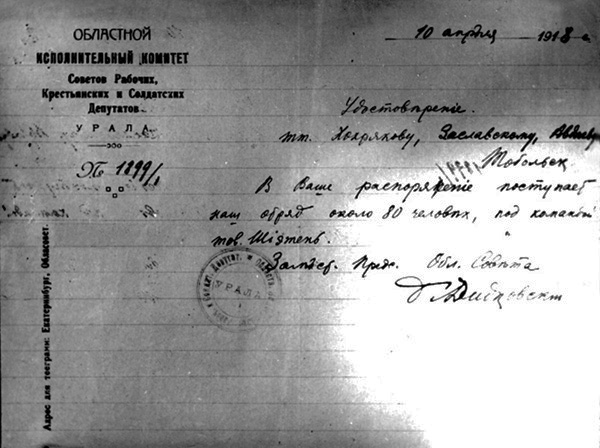 ОБЛАСТНОЙ
ИСПОЛНИТЕЛЬНЫЙ КОМИТЕТ
Советов Рабочих,
Крестьянских и Солдатских
Депутатов
УРАЛА
№ 1899/1
10 апреля 1918 г
Удостоверение
тт. Хохрякову, Заславскому, Авдееву
Тобольск
В Ваше распоряжение поступает
наш отряд около 80 человек, под командой
тов.
Замест. Пред. Обл. Совета
Дидковский
УРАЛА
Адрес для телеграмм: Екатеринбург, Обласовет.